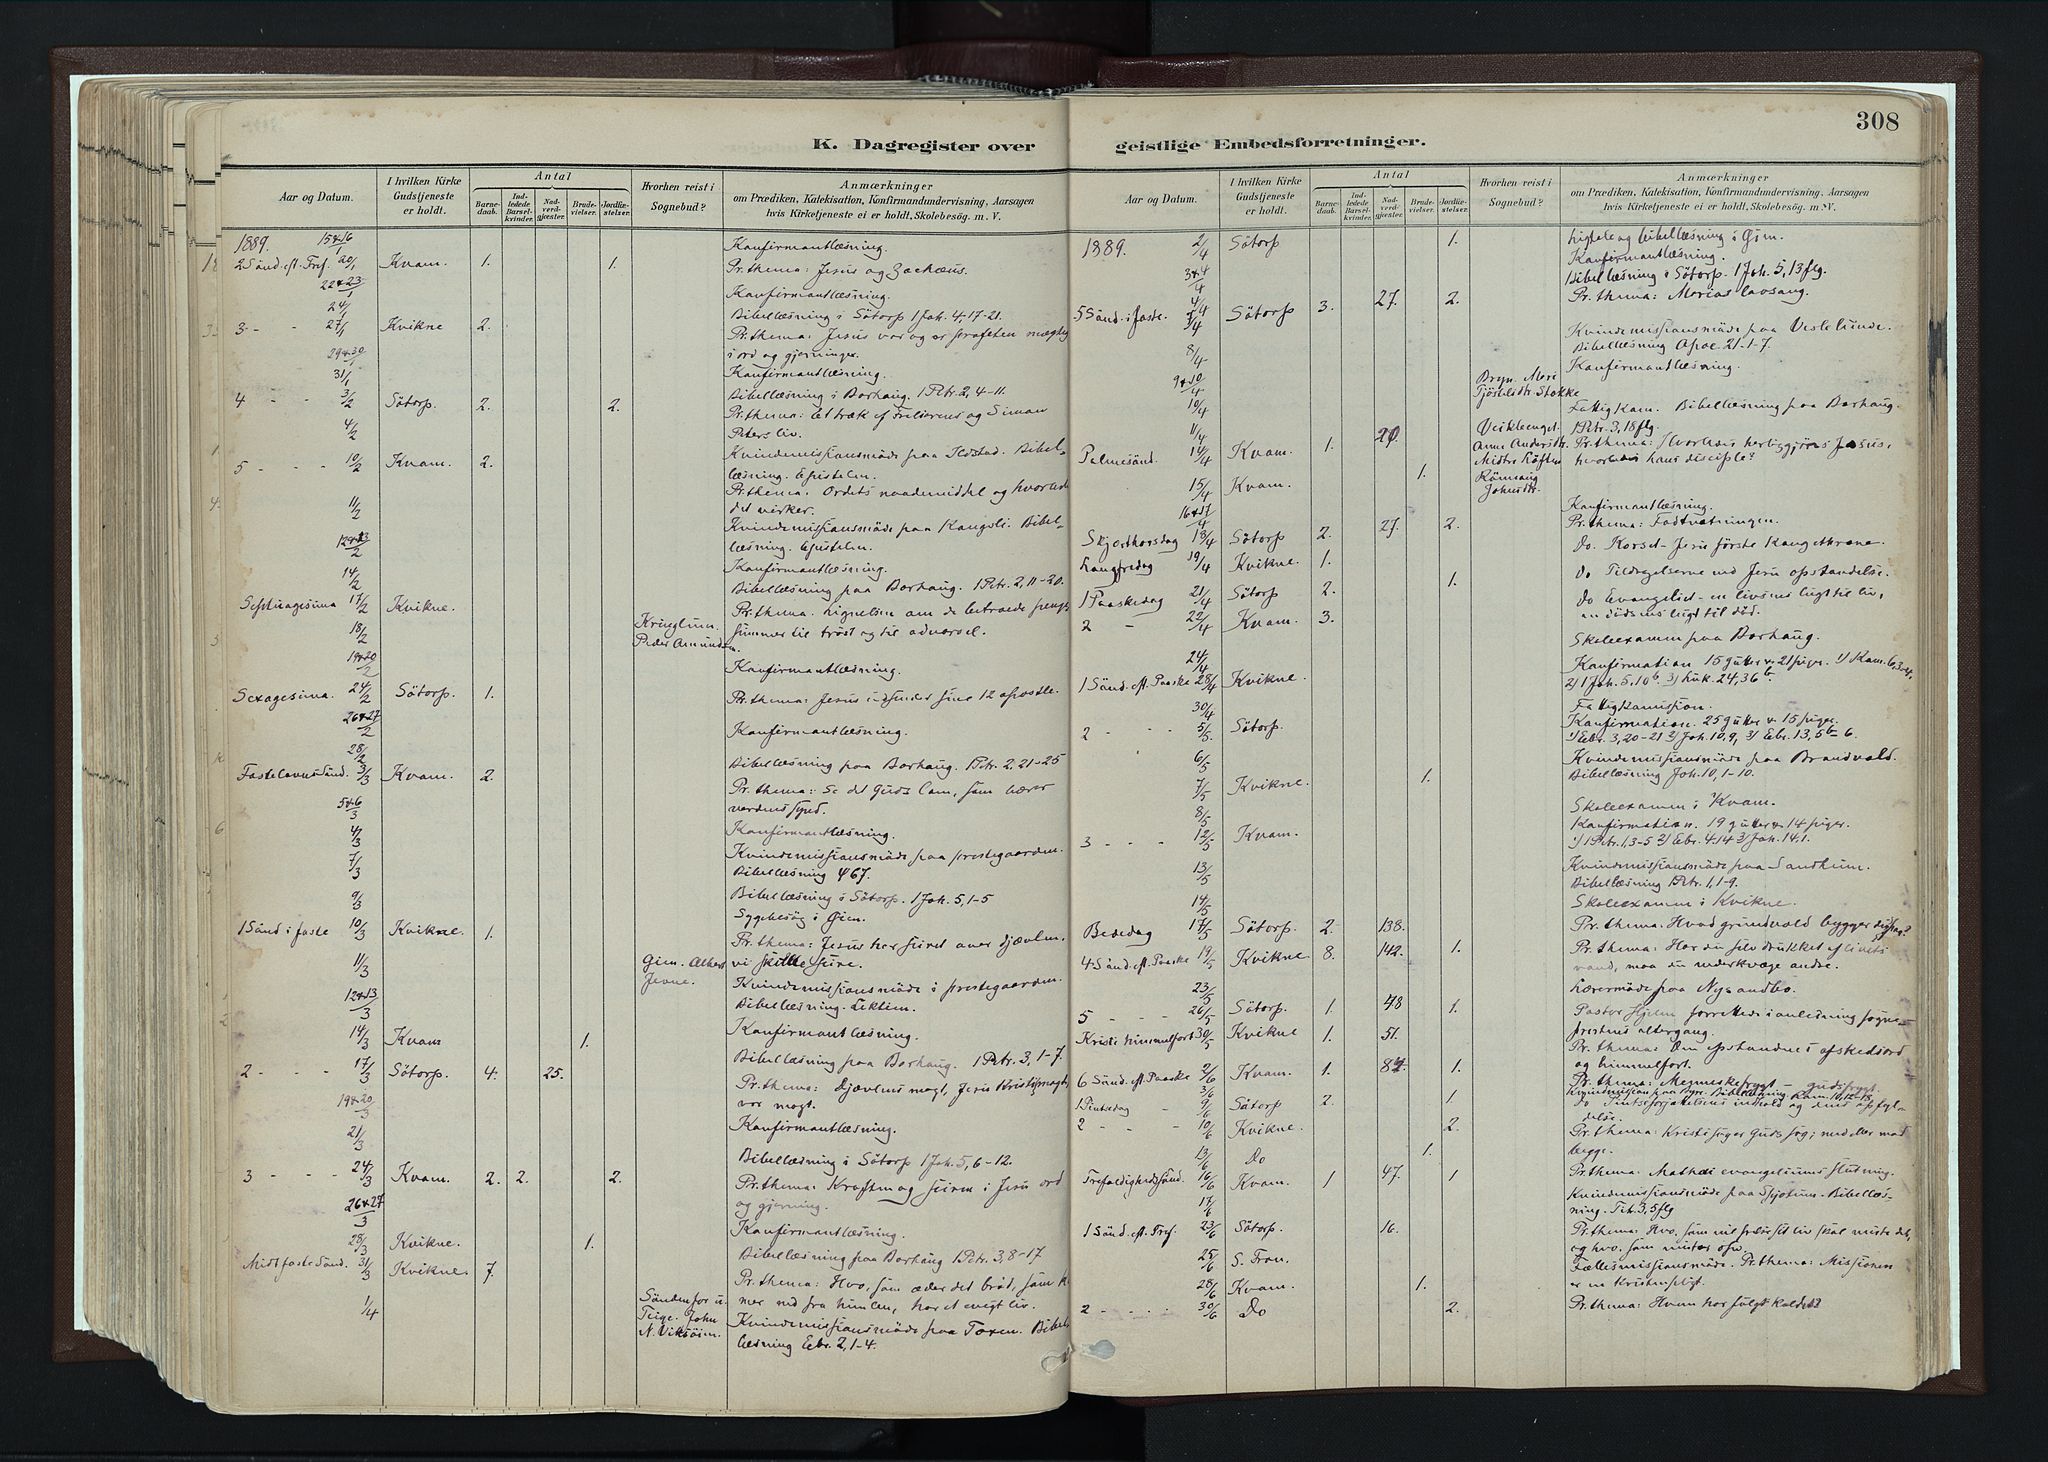 308
K. Dagregister over
geistlige Embedsforretninger.
Aar og Datum.
I hvilken Kirke Gudstjeneste er holdt.
Antal
Barnedaab.
Indledede Barselkvinder.
Nadverdgjester.
Brudevielser.
Jordfæstelser.
Hvorhen reist i Sognebud?
Anmærkninger
om Prædiken, Katekisation, Konfirmandundervisning, Aarsagen
hvis Kirketjeneste ei er holdt, Skolebesøg. m. V.
1889. 15&16/1 Konfirmantlæsning.
2 Sönd. eft. Tref. 20/1 Kvam. 1. 1. Pr. thema: Jesus og Zachæus.
22&23/1 Konfirmantlæsning.
24/1 Bibellæsning i Sötorp 1 Joh. 4, 17-21.
3 - - 27/1 Kvikne 2. Pr. thema: Jesus var og er profeten mægtig
i ord og gjerninger.
29&30/1 Konfirmantlæsning.
31/1 Bibellæsning i Borhaug. 1 Petr. 2, 4-11.
4 - - 3/2 Sötorp. 2. 2. Pr. thema: Et træk af Simon
Peters liv.
4/2 Kvindemissionsmöde paa Ilstad. Bibel-
læsning. Epistelen.
5 - - - 10/2 Kvam. 2. Pr. thema: Ordets naademiddel og hvorledes
det virker.
11/2 Kvindemissionsmöde paa Kongsli. Bibel-
læsning. Epistelen.
12&13/2 Konfirmantlæsning.
14/2 Bibellæsning paa Borhaug. 1 Petr. 2, 11-20.
Septuagesima 17/2 Kvikne. Pr. thema: Lignelsen om de betroede penge
summer til tröst og til advarsel.
18/2 Kringlum. Peder Amundsen.
19&20/2 Konfirmantlæsning.
Sexagesima. 24/2 Sötorp. 1. Pr. thema: Jesus udsender sine 12 apostle.
26&27/2 Konfirmantlæsning.
28/2 Bibellæsning paa Borhaug. 1 Petr. 2, 21-25
Fastelavns Sönd. 3/3 Kvam. 2. Pr. thema: Se det Guds Lam, som bærer
verdens synd.
5&6/3 Konfirmantlæsning.
4/3 Kvindemissionsmöde paa prestegaarden.
Bibellæsning
7/3 Bibellæsning i Sötorp. 1 Joh. 5, 1-5
9/3 Sygebesög i Gjen.
1 Sönd i faste 10/3 Kvikne. 1. Pr. thema: Jesus har seiret over djævlen,
vi skulle seire.
11/3 Kvindemissionsmöde i prestegaarden.
Bibellæsning. Lektien.
12&13/3 Konfirmantlæsning.
14/3 Kvam 1. Bibellæsning paa Borhaug. 1 Petr. 3, 1-7.
2 - - - 17/3 Sötorp. 4. 25. Pr. thema: Djævlens magt, Jesu Kristi magt,
vor magt.
19&20/3 Konfirmantlæsning.
21/3 Bibellæsning i Sötorp 1 Joh. 5, 6-12.
3 - - - 24/3 Kvam. 2. 2. 2. Pr. thema: Kraften og seiren i Jesu ord
og gjerning.
26&27/3 Konfirmantlæsning.
28/3 Kvikne. 1. Bibellæsning paa Borhaug 1 Petr. 3, 8-17
Midtfaste Sönd. 31/3 Kvikne 7. Pr. thema: Hvo, som æder det bröd, som kom-
mer ned fra himlen, har et evigt liv.
1/4 Kvindemissionsmöde paa Toxen. Bibel-
læsning Ebr. 2, 1-4.
1889. 2/4 Sötorp 1. Ligtale og bibellæsning i Gjen.
3&4/4 Konfirmantlæsning.
4/4 Bibellæsning i Sötorp. 1 Joh. 5, 13 flg.
5 Sönd. i faste. 7/4 Sötorp 3. 27. 2. Pr. thema: Marias lovsang.
8/4 Kvindemissionsmöde paa Veslelunde.
Bibellæsning Apoc. 21. 1-7.
9&10/4 Konfirmantlæsning.
10/4 Fattigkom. Bibellæsning paa Borhaug.
11/4 1 Petr. 3, 18 flg.
Palmesönd. 14/4 Kvam. 1. 20. Pr. thema: Hvorledes herliggjöres Jesus,
hvorledes hans disciple?
15/4 Kvam. 1.
16&17/4 Konfirmantlæsning.
Skjærthorsdag 18/4 Sötorp 2. 27. 2. Pr. thema: Fodtvætningen.
Langfredag 19/4 Kvikne. 1. Do. Korset - Jesu förste kongethrone.
1 Paaskedag 21/4 Sötorp 2. 1. Do Tildragelserne ved Jesu opstandelse.
2 - 22/4 Kvam. 3. Do Evangeliet - en livsens lugt til liv,
en dödsens lugt til död.
24/4 Skoleexamen paa Borhaug.
1 Sönd. eft. Paaske 28/4 Kvikne. Konfirmation 15 gutter & 21 piger. 1) Rom. 6, 3-4.
2) 1 Joh. 5, 10b 3) Luk. 24, 36b.
30/4 Fattigkomission.
2 - - - 5/5 Sötorp. Konfirmation. 25 gutter & 15 piger.
1) Ebr. 3, 20-21 2) Joh. 10, 9, 3) Ebr. 13, 5b-6.
6/5 Kvindemissionsmöde paa Brandvold.
Bibellæsning Joh. 10, 1-10.
7/5 Kvikne. 1.
8/5 Skoleexamen i Kvam.
3 - - - 12/5 Kvam. Konfirmation. 19 gutter & 14 piger.
1) 1 Petr. 1, 3-5 2) Ebr. 4. 14 3) Joh. 14. 1.
13/5 Kvindemissionsmöde paa Sandheim.
Bibellæsning 1 Petr. 1, 1-9.
14/5 Skoleexamen i Kvikne.
Bededag 17/5 Sötorp. 2. 138. Pr. thema: Hvad grundvold bygger du paa?
4 Sönd. eft. Paaske 19/5 Kvikne 8. 142. 1. Pr. thema: Har du selv drukket af livets
vand, maa du vederkvæge andre.
23/5 Lærermöde paa Nysandbo.
5 - - - 26/5 Sötorp. 1. 48 1. Pastor Hjelm forrettede i anledning sogne-
prestens altergang.
Kristi himmelfart 30/5 Kvikne 1. 51. Pr. thema: Den opstandnes afskedsord
og himmelfart.
6 Sönd. eft. Paaske 2/6 Kvam. 1. 1. Pr. thema: Menneskefrygt - gudsfrygt.
3/6 Bibellæsning. Rom. 10, 12-18.
1 Pintsedag - 9/6 Sötorp 2. 1. Do Pintseforjættelsens indhold og dens opfyl-
delse.
2 - - - 10/6 Kvikne. 2. Pr. thema:
begge.
13/6 Do 1.
Trefoldighedssönd. 16/6 Kvam. 1 47. 1 Pr. thema: Mathæi evangeliums slutning.
17/6 Kvindemissionsmöde paa Skjotum. Bibellæs-
ning. Tit. 3, 5 flg
1 Sönd. eft. Tref. 23/6 Sötorp. 16. Pr. thema: Hvo, som vil frelse sit liv skal miste det,
og hvo, som mister osv.
25/6 S. Fron. Fællesmissionsmöde. Pr. thema: Missionen
28/6 Kvam. 1.
2 - - - 30/6 Do 2. Pr. thema: Hvem har fulgt kaldet?